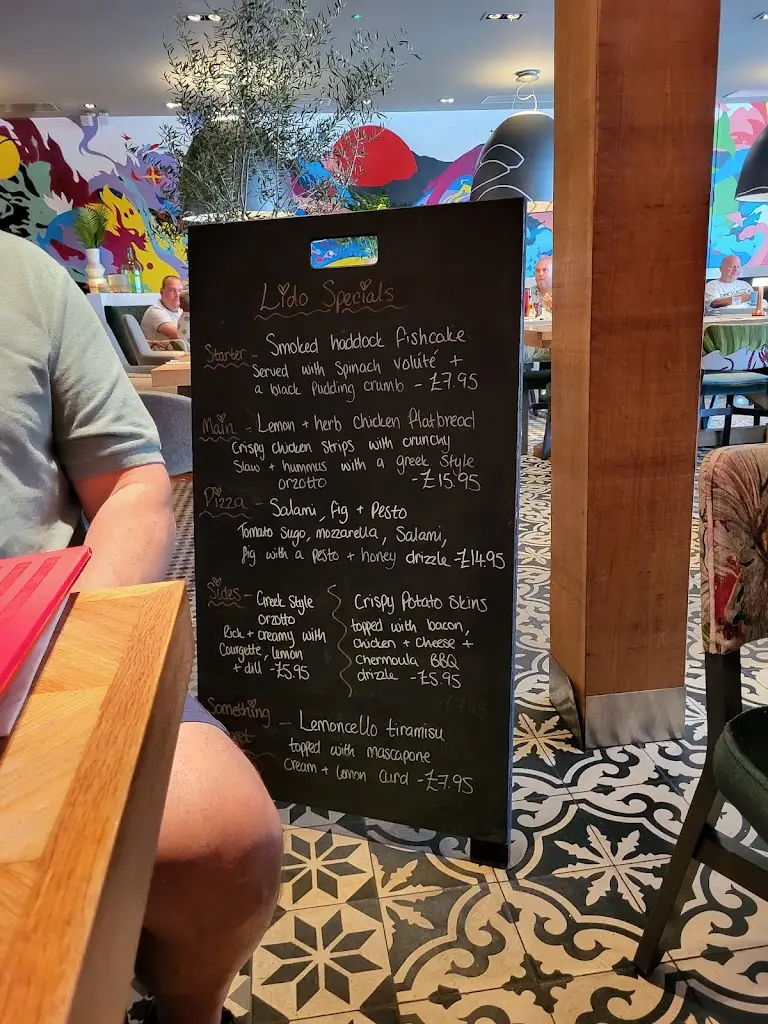 Lido Specials
Starter - Smoked haddock fishcake
Served with Spinach volúté +
a black pudding crumb - £7.95
Main - Lemon + herb chicken flatbread
Crispy chicken strips with crunchy
Slaw + hummus with a greek style
orzotto - £15.95
Pizza - Salami, fig + Pesto
Tomato sugo, mozzarella, Salami,
fig with a pesto + honey drizzle - £14.95
Sides - Greek Style
orzotto
Rich + creamy with
Courgette, lemon
+ dill - £5.95
Crispy Potato Skins
topped with bacon,
chicken + cheese +
chermoula BBQ
drizzle - £5.95
Something
- Lemoncello tiramisu
topped with mascapone
cream + lemon curd - £7.95